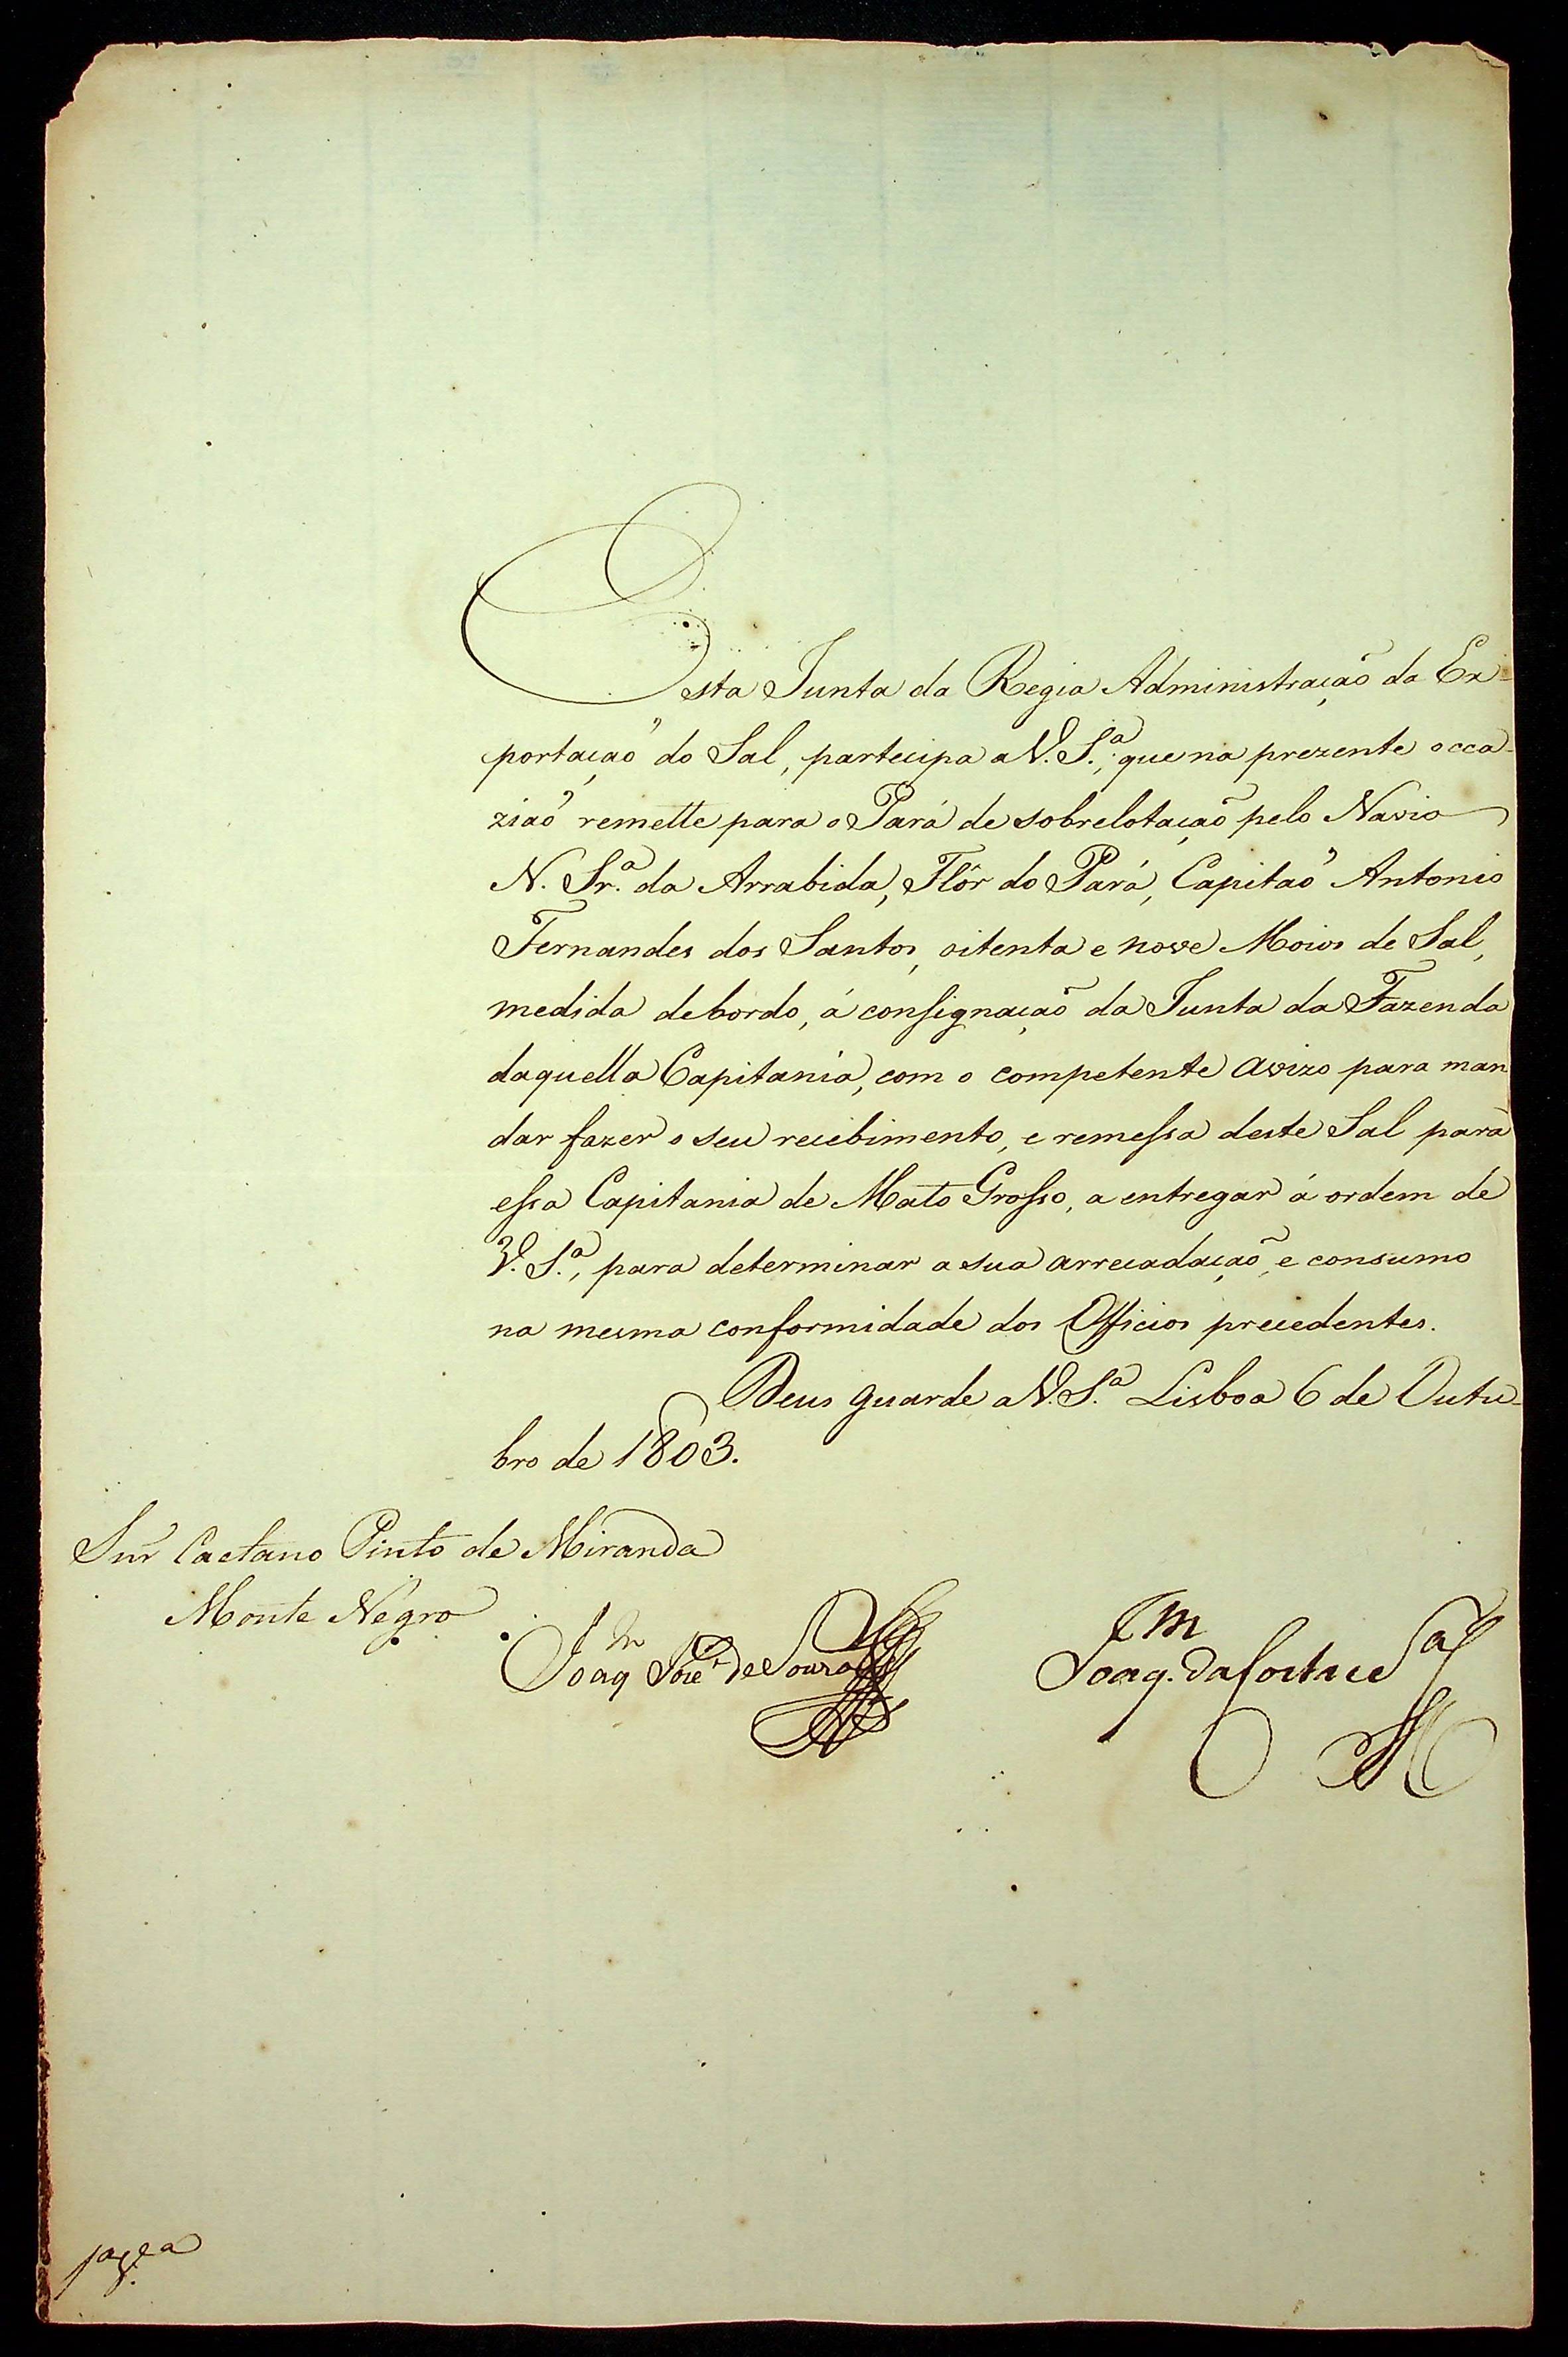 Esta Junta da Regia Administração da Ex-
portação do Sal, partecipa a V. S.ª, que na prezente occa-
zião remette para o Pará de sobrelotação pelo Navio
N. Sr.ª da Arrabida, Flôr do Pará, Capitaõ Antonio
Fernandes dos Santos, oitenta e nove Moios de Sal,
medida debordo, á consignação da Junta da Fazenda
daquella Capitania, com o competente avizo para man
dar fazer o seu recebimento, e remessa deste Sal para
essa Capitania de Mato Grosso, a entregar á ordem de
V. S.ª, para determinar a sua arrecadação, e consumo
na mesma conformidade dos Officios precedentes.
Deus guarde a V. S.ª Lisboa 6 de Outu-
bro de 1803.
Snr Caetano Pinto de Miranda
Monte Negro
Joaq José de Souza
Joaq.m da Costa e S.a